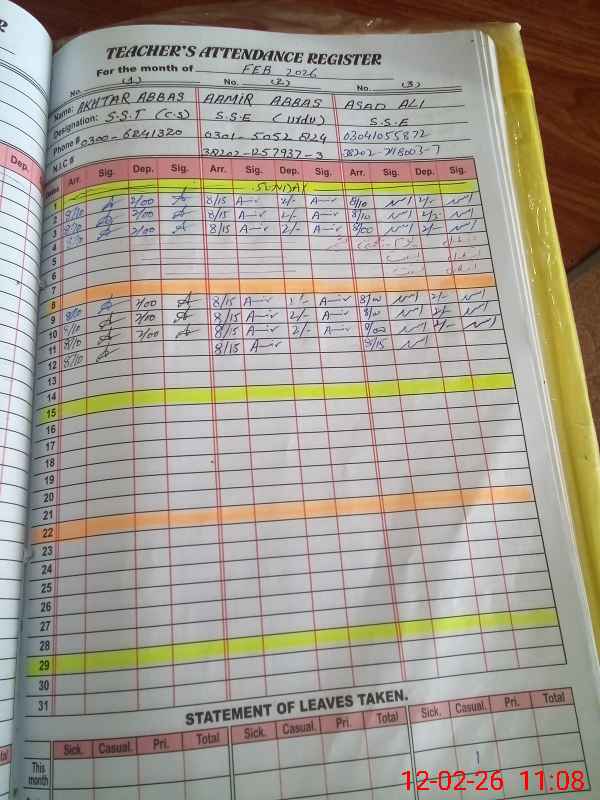 TEACHER'S ATTENDANCE REGISTER
For the month of FEB 2026
No. (1) No. (2) No. (3)
Name: AKHTAR ABBAS AAMIR ABBAS ASAD ALI
Designation: S.S.T (C.S) S.S.E (Urdu) S.S.E
Phone # 0300-6841320 0301-5052824 03041055872
N.I.C # 38202-1257937-3
Dep.
Arr. Sig. Dep. Sig. Arr. Sig. Dep. Sig. Arr. Sig. Dep. Sig.
1 SUNDAY
2 8/10 2/00 8/15 2/- 8/10 2/-
3 8/10 2/00 8/15 2/- 8/10 2/-
4 8/10 2/00 8/15 2/- 8/00 2/-
5
6
7
8
9 8/10 2/00 8/15 1/- 8/00 2/-
10 8/10 2/00 8/15 2/- 8/00 2/-
11 8/10 2/00 8/15 2/- 8/00 2/-
12 8/10 8/15 8/15
13
14
15
16
17
18
19
20
21
22
23
24
25
26
27
28
29
30
31
STATEMENT OF LEAVES TAKEN.
Sick. Casual. Pri. Total Sick. Casual. Pri. Total Sick. Casual. Pri. Total
This month 1
12-02-26 11:08